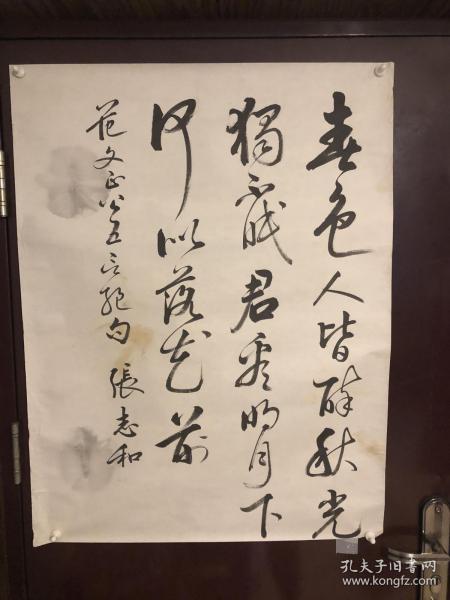 春色人皆醉秋光
獨不眠君看明月下
何似落花前
范文正公五言絕句 張志和
孔夫子旧书网
www.kongfz.com